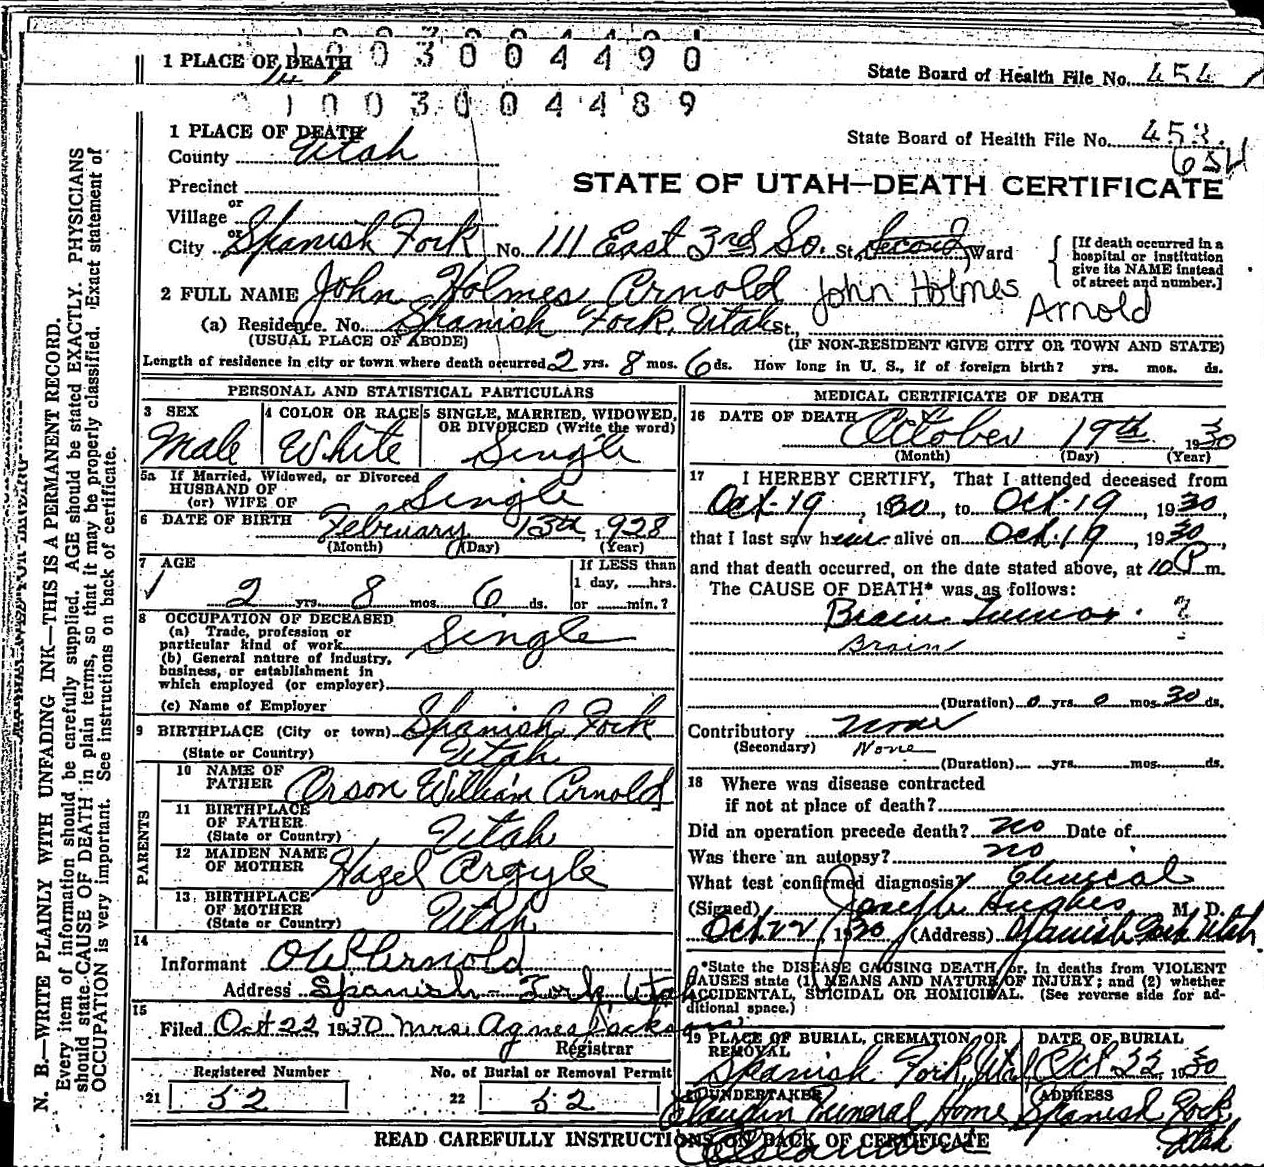 1 PLACE OF DEATH 1003004490
State Board of Health File No. 454
1003004489
1 PLACE OF DEATH
State Board of Health File No. 453.
654
County Utah
STATE OF UTAH—DEATH CERTIFICATE
Precinct
or
Village
or
City Spanish Fork No. 111 East 3rd So. St. Second Ward
[If death occurred in a hospital or institution give its NAME instead of street and number.]
2 FULL NAME John Holmes Arnold John Holmes Arnold
(a) Residence. No. Spanish Fork, Utah St.,
(USUAL PLACE OF ABODE) (IF NON-RESIDENT GIVE CITY OR TOWN AND STATE)
Length of residence in city or town where death occurred 2 yrs. 8 mos. 6 ds. How long in U. S., if of foreign birth? yrs. mos. ds.
PERSONAL AND STATISTICAL PARTICULARS
3 SEX
Male
4 COLOR OR RACE
White
5 SINGLE, MARRIED, WIDOWED, OR DIVORCED (Write the word)
Single
5a If Married, Widowed, or Divorced
HUSBAND OF
(or) WIFE OF Single
6 DATE OF BIRTH February 13th 1928
(Month) (Day) (Year)
7 AGE
2 yrs. 8 mos. 6 ds.
If LESS than
1 day, hrs.
or min.?
8 OCCUPATION OF DECEASED
(a) Trade, profession or
particular kind of work Single
(b) General nature of industry,
business, or establishment in
which employed (or employer)
(c) Name of Employer
9 BIRTHPLACE (City or town) Spanish Fork
(State or Country) Utah
PARENTS
10 NAME OF FATHER Orson William Arnold
11 BIRTHPLACE OF FATHER
(State or Country) Utah
12 MAIDEN NAME OF MOTHER Hazel Argyle
13 BIRTHPLACE OF MOTHER
(State or Country) Utah
14
Informant Arnold
Address Spanish Fork, Utah
15
Filed Oct 22 1930 Mrs. Agnes Jackson
Registrar
Registered Number
21 52
No. of Burial or Removal Permit
22 52
MEDICAL CERTIFICATE OF DEATH
16 DATE OF DEATH October 19th, 1930
(Month) (Day) (Year)
17 I HEREBY CERTIFY, That I attended deceased from
Oct. 19, 1930, to Oct. 19, 1930,
that I last saw him alive on Oct. 19, 1930,
and that death occurred, on the date stated above, at 10 P m.
The CAUSE OF DEATH* was as follows:
Brain Tumor. ?
Brain
(Duration) 0 yrs. 0 mos. 30 ds.
Contributory none
(Secondary) None
(Duration) yrs. mos. ds.
18 Where was disease contracted
if not at place of death?
Did an operation precede death? no Date of
Was there an autopsy? no
What test confirmed diagnosis? Clinical
(Signed) Joseph Hughes M. D.
Oct 22, 1930 (Address) Spanish Fork Utah.
*State the DISEASE CAUSING DEATH, or. In deaths from VIOLENT
CAUSES state (1) MEANS AND NATURE OF INJURY; and (2) whether
ACCIDENTAL, SUICIDAL OR HOMICIDAL. (See reverse side for ad-
ditional space.)
19 PLACE OF BURIAL, CREMATION, OR REMOVAL
Spanish Fork, Utah
DATE OF BURIAL
Oct 22 1930
UNDERTAKER
Claudin Funeral Home
ADDRESS
Spanish Fork, Utah
READ CAREFULLY INSTRUCTIONS ON BACK OF CERTIFICATE
N. B.—WRITE PLAINLY WITH UNFADING INK—THIS IS A PERMANENT RECORD.
Every item of information should be carefully supplied. AGE should be stated EXACTLY. PHYSICIANS
should state CAUSE OF DEATH in plain terms, so that it may be properly classified. Exact statement of
OCCUPATION is very important. See instructions on back of certificate.